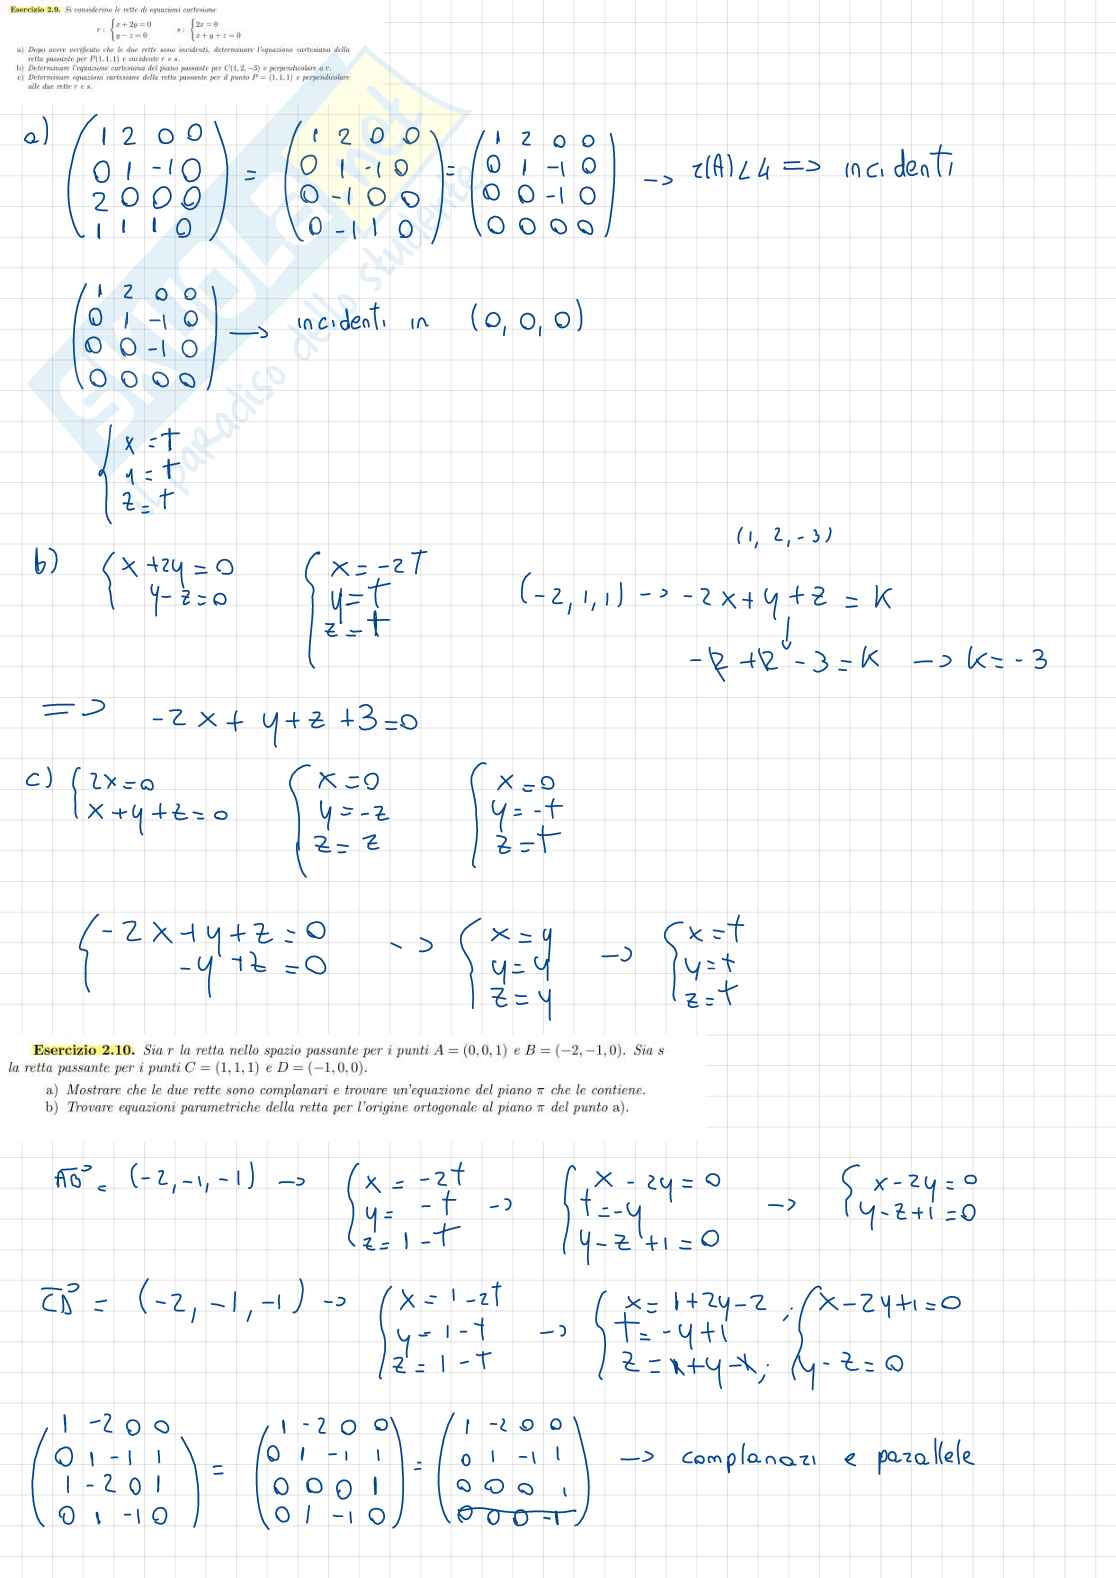 Esercizio 2.9. Si considerino le rette di equazioni cartesiane
r : { x + 2y = 0   y − z = 0   s : { 2x = 0   x + y + z = 0
a) Dopo avere verificato che le due rette sono incidenti, determinare l'equazione cartesiana della
retta passante per P(1, 1, 1) e incidente r e s.
b) Determinare l'equazione cartesiana del piano passante per C(1, 2, −3) e perpendicolare a r.
c) Determinare equazioni cartesiane della retta passante per il punto P = (1, 1, 1) e perpendicolare
alle due rette r e s.
a) (1 2 0 0 = (1 2 0 0 = (1 2 0 0
0 1 -1 0   0 1 -1 0   0 1 -1 0 → r(A)<4 => incidenti
2 0 0 0   0 -1 0 0   0 0 -1 0
1 1 1 0)   0 -1 1 0)   0 0 0 0)
(1 2 0 0
0 1 -1 0 → incidenti in (0, 0, 0)
0 0 -1 0
0 0 0 0)
{ x = t
y = t
z = t
(1, 2, -3)
b) { x + 2y = 0   { x = -2t
y - z = 0   y = t   (-2, 1, 1) → -2x + y + z = K
z = t
-2 + 2 - 3 = K → K = -3
=> -2x + y + z + 3 = 0
c) { 2x = 0   { x = 0   { x = 0
x + y + z = 0   y = -z   y = -t
z = z   z = t
{ -2x + y + z = 0 → { x = y → { x = t
-y + z = 0   y = y   y = t
z = y   z = t
Esercizio 2.10. Sia r la retta nello spazio passante per i punti A = (0, 0, 1) e B = (−2, −1, 0). Sia s
la retta passante per i punti C = (1, 1, 1) e D = (−1, 0, 0).
a) Mostrare che le due rette sono complanari e trovare un'equazione del piano π che le contiene.
b) Trovare equazioni parametriche della retta per l'origine ortogonale al piano π del punto a).
AB = (-2, -1, -1) → { x = -2t → { x - 2y = 0 → { x - 2y = 0
y = -t   t = -y   y - z + 1 = 0
z = 1 - t   y - z + 1 = 0
CD = (-2, -1, -1) → { x = 1 - 2t → { x = 1 + 2y - 2 ; { x - 2y + 1 = 0
y = 1 - t   t = -y + 1
z = 1 - t   z = 1 + y - 1 ;   y - z = 0
(1 -2 0 0 = (1 -2 0 0 = (1 -2 0 0
0 1 -1 1   0 1 -1 1   0 1 -1 1 → complanari e parallele
1 -2 0 1   0 0 0 1   0 0 0 1
0 1 -1 0)   0 1 -1 0)   0 0 0 -1)
SKUOLA.net
il paradiso dello studente